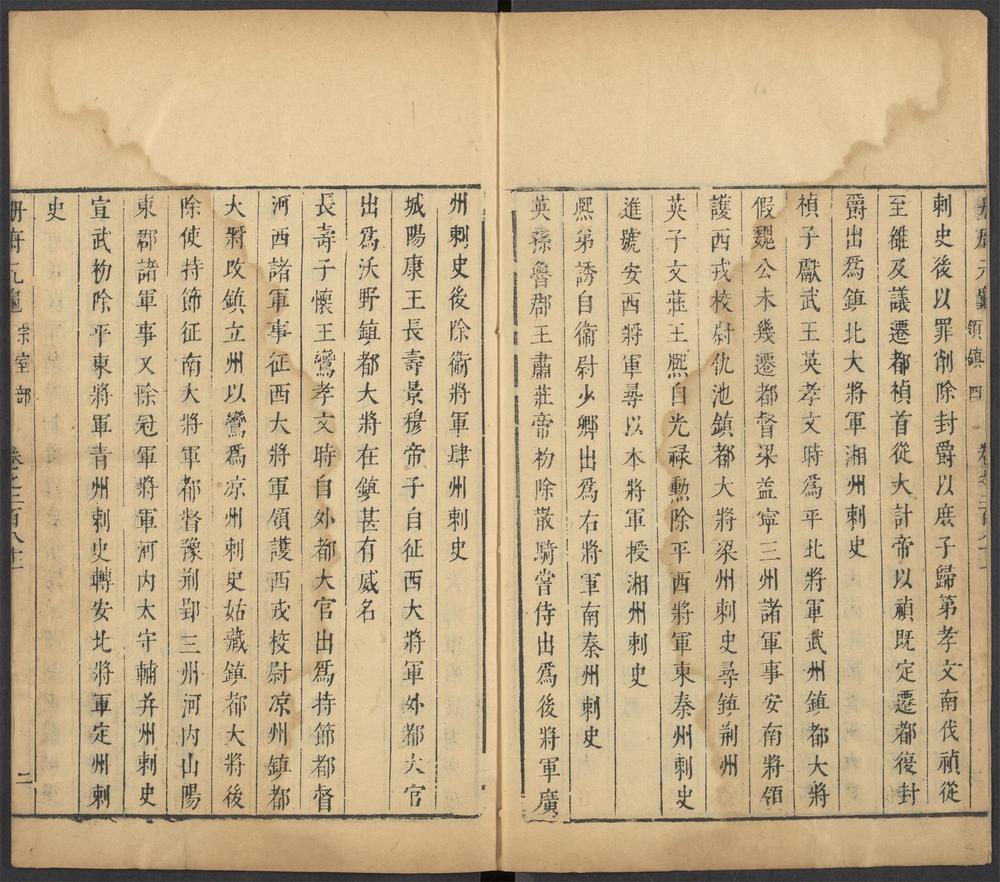 冊府元龜 領鎮四 卷之二百八十一
刺史後以罪削除封爵以庶子歸第孝文南伐禎從
至雒及議遷都禎首從大計帝以禎既定遷都復封
爵出爲鎮北大將軍湘州刺史
楨子獻武王英孝文時爲平北將軍武州鎮都大將
假魏公未幾遷都督梁益寧三州諸軍事安南將領
護西戎校尉仇池鎮都大將梁州刺史尋鎮荊州
英子文莊王熈自光禄勲除平西將軍東秦州刺史
進號安西將軍尋以本將軍授湘州刺史
熈第誘自衛尉少卿出爲右將軍南秦州刺史
英孫魯郡王肅莊帝初除散騎嘗侍出爲後將軍廣
州刺史後除衛將軍肆州刺史
城陽康王長壽景穆帝子自征西大將軍外都大官
出爲沃野鎮都大將在鎮甚有威名
長壽子懷王鸞孝文時自外都大官出爲持節都督
河西諸軍事征西大將軍領護西戎校尉凉州鎮都
大將改鎮立州以鸞爲凉州刺史姑臧鎮都大將後
除使持節征南大將軍都督豫荊郢三州河内山陽
東郡諸軍事又除冠軍將軍河内太守輔并州刺史
宣武初除平東將軍青州刺史轉安北將軍定州刺
史
冊府元龜 宗室部 卷之二百八十一 二